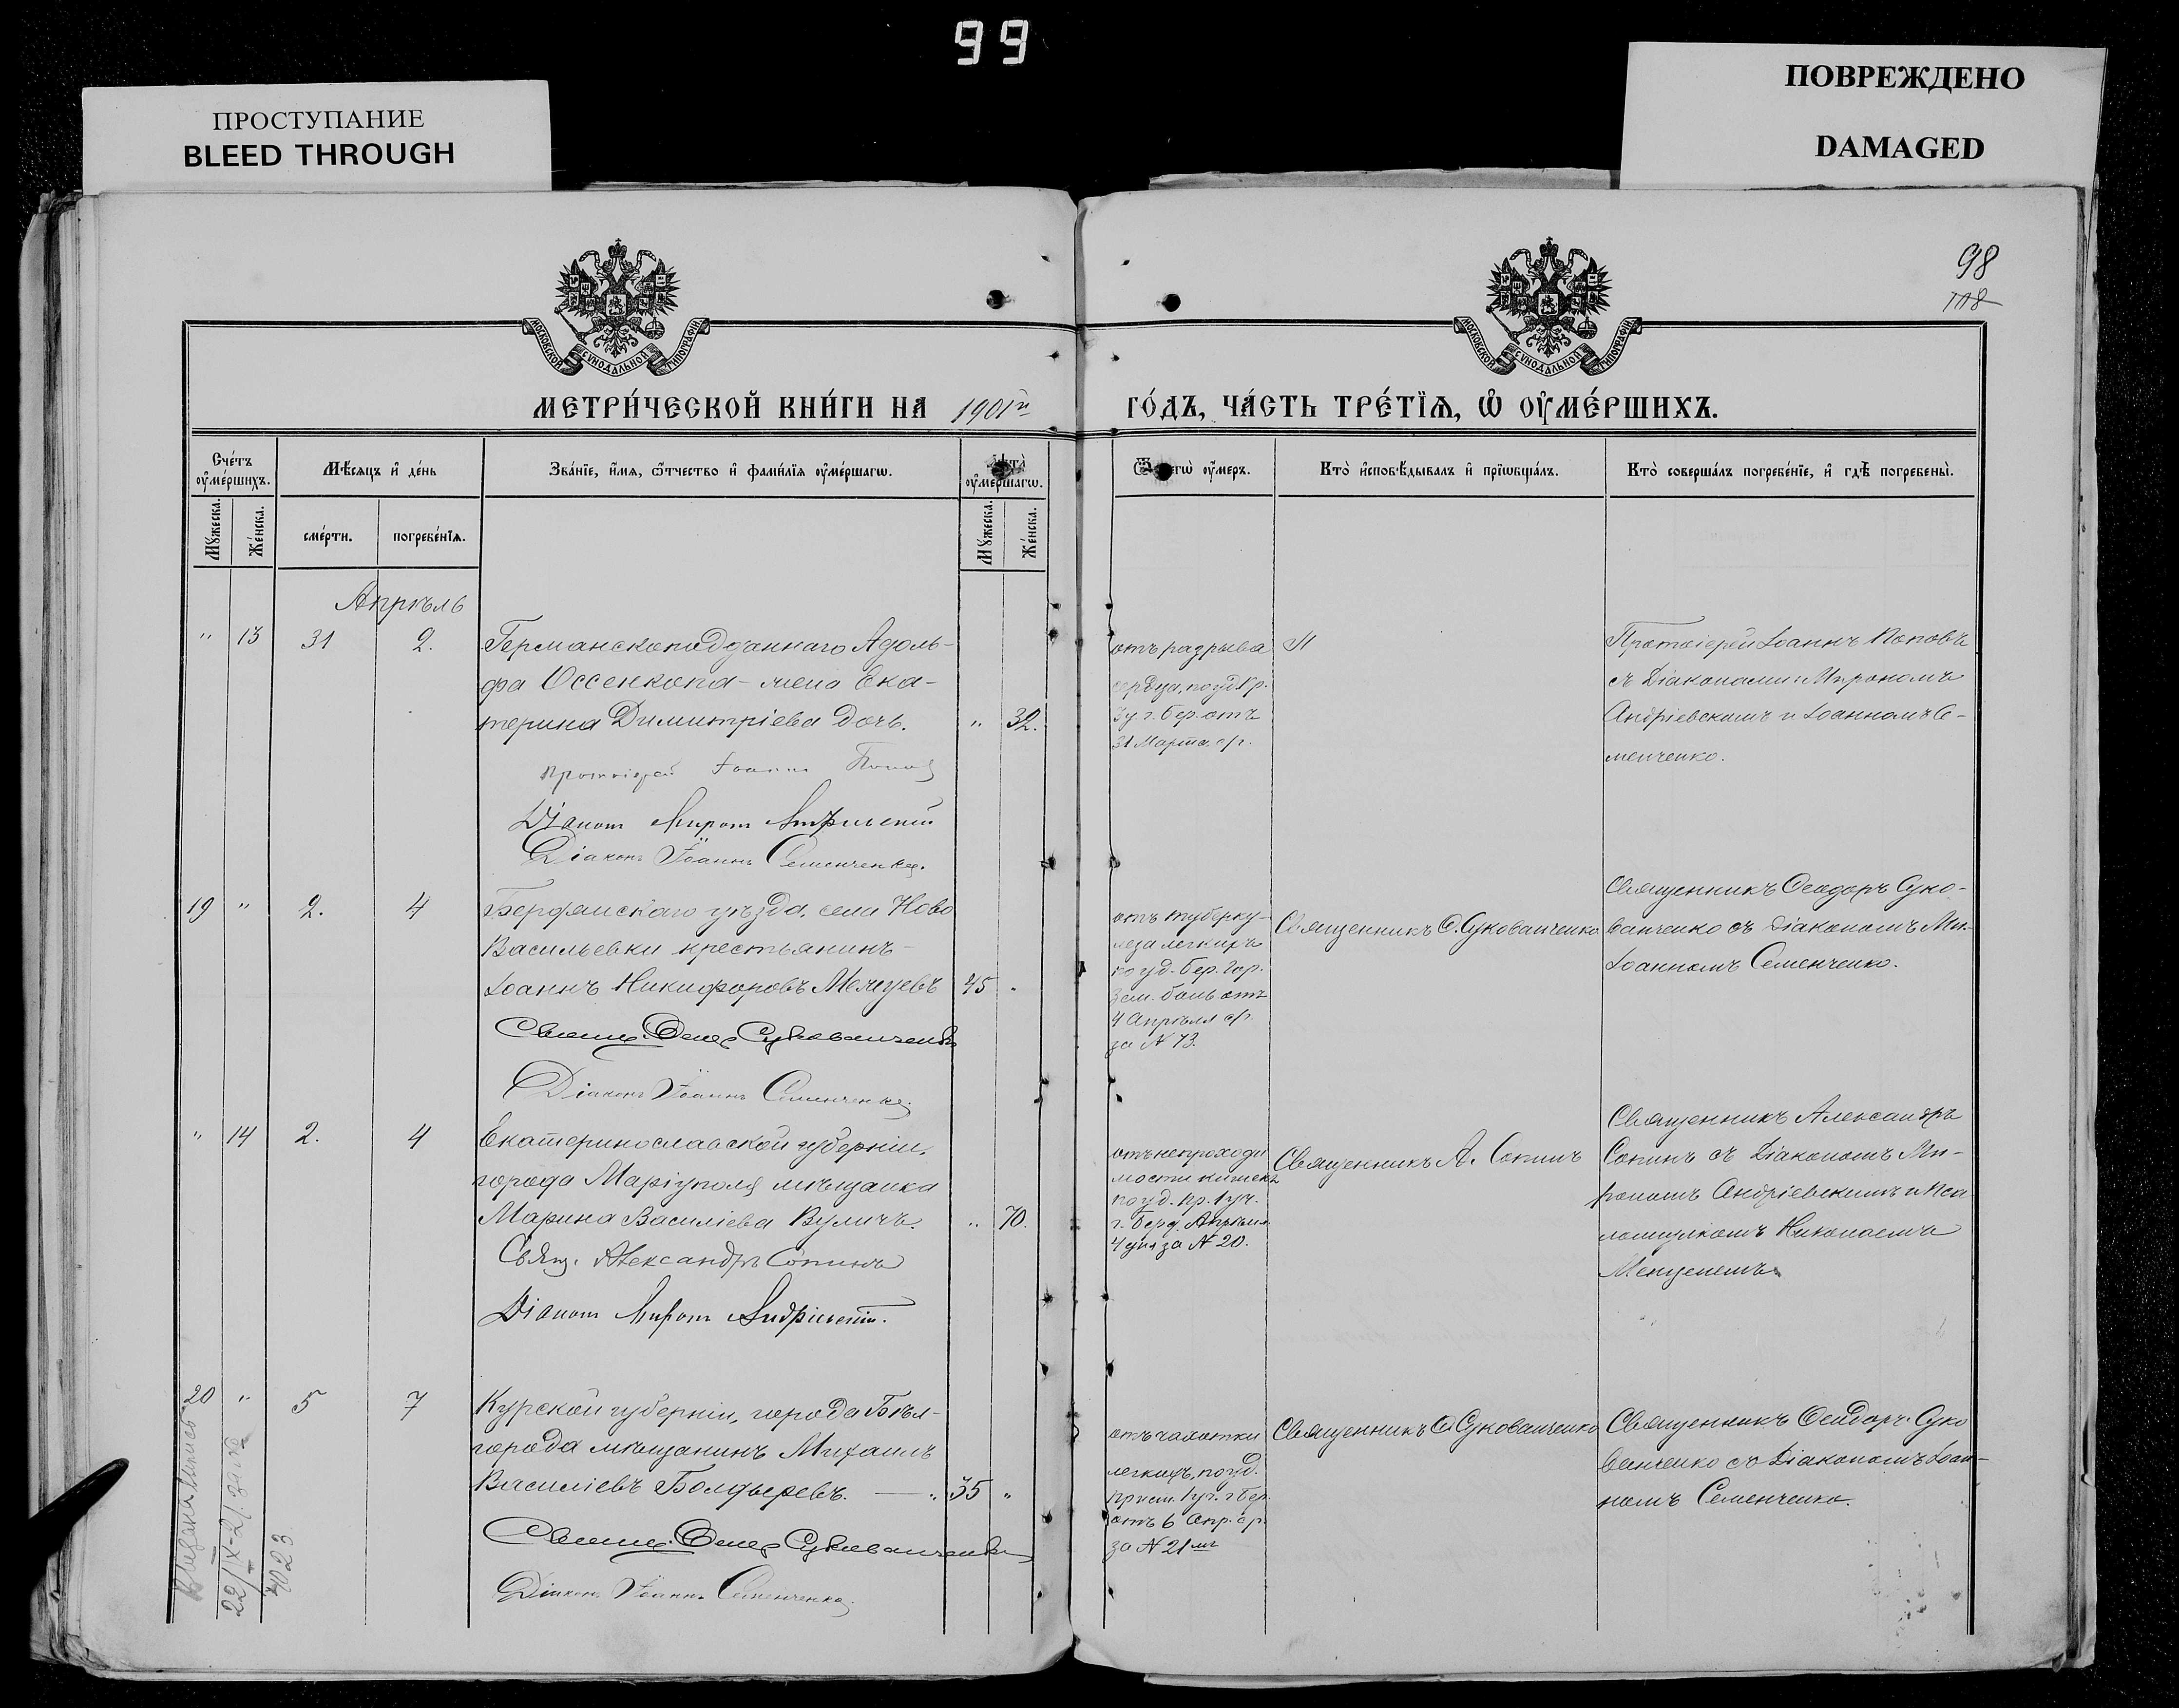 99
ПРОСТУПАНИЕ
BLEED THROUGH
ПОВРЕЖДЕНО
DAMAGED
98
118
МОСКОВСКОЙ СѴНОДАЛЬНОЙ ТИПОГРАФІИ
МОСКОВСКОЙ СѴНОДАЛЬНОЙ ТИПОГРАФІИ
МЕТРИ́ЧЕСКОЙ КНИ́ГИ НА 1901й ГО́ДЪ, ЧА́СТЬ ТРЕ́ТЇѦ, Ѡ ОУМЕ́РШИХЪ.
Сче́тъ оуме́ршихъ.
Мѣ́сяцъ и де́нь
Зва́нїе, и́мѧ, ѻ́тчество и фами́лїѧ оуме́ршагѡ.
Лѣта̀ оуме́ршагѡ.
Ѿ чегѡ̀ оу́меръ.
Кто̀ исповѣ́дывалъ и прїѡбща́лъ.
Кто̀ соверша́лъ погребе́нїе, и гдѣ̀ погребены̀.
Мꙋжеска.
Же́нска.
сме́рти.
погребе́нїѧ.
Мꙋжеска.
Же́нска.
Апрѣль
" 13 31 2.
Германскоподданнаго Адоль-
фа Оссенкопа - жена Ека-
терина Димитріева дочь. " 32.
Протоіерей Іоаннъ Попов
Діаконъ Миронъ Андріевскій
Діаконъ Іоаннъ Семенченко.
отъ разрыва
сердца, по уд. вр.
3 у. г. Бер. отъ
31 Марта с/г.
Протоіерей Іоаннъ Поповъ
съ Діаконами: Мирономъ
Андріевскимъ и Іоанномъ Се-
менченко.
19 " 2. 4
Бердянскаго уѣзда, села Ново
Васильевки крестьянинъ
Іоаннъ Никифоровъ 45 "
Свящ. Ѳеод. Сукованченко
Діаконъ Іоаннъ Семенченко.
отъ туберку-
леза легкихъ
по уд. Бер. Гор.
Зем. боль отъ
4 Апрѣля с/г.
за N 73.
Священникъ Ѳ. Сукованченко
Священникъ Ѳеодоръ Суко-
ванченко съ Діакономъ
Іоанномъ Семенченко.
" 14 2. 4
Екатеринославской губерніи,
города Маріуполя мѣщанка
Марина Василіева Вуличъ. " 70.
Свящ. Александръ Сопинъ
Діаконъ Миронъ Андріевскій.
отъ непроходи
мости кишекъ
по уд. вр. 1 уч.
г. Берд. Апрѣля
4 дня за N 20.
Священникъ А. Сопинъ
Священникъ Александръ
Сопинъ съ Діакономъ Ми-
рономъ Андріевскимъ и Пса
ломщикомъ Николаемъ
20 " 5 7
Курской губерніи, города Бѣл-
города мѣщанинъ Михаилъ
Василіевъ Болдыревъ. — " 35 "
Свящ. Ѳеод. Сукованченко
Діаконъ Іоаннъ Семенченко.
отъ чахотки
легкихъ, по уд.
врач. 1 уч. г. Бер.
отъ 6 Апр. с/г.
за N 21мъ
Священникъ Ѳ. Сукованченко
Священникъ Ѳеодоръ Суко
ванченко съ Діакономъ Іоан-
номъ Семенченко.
Выдана выпись
22/IX-21
4023